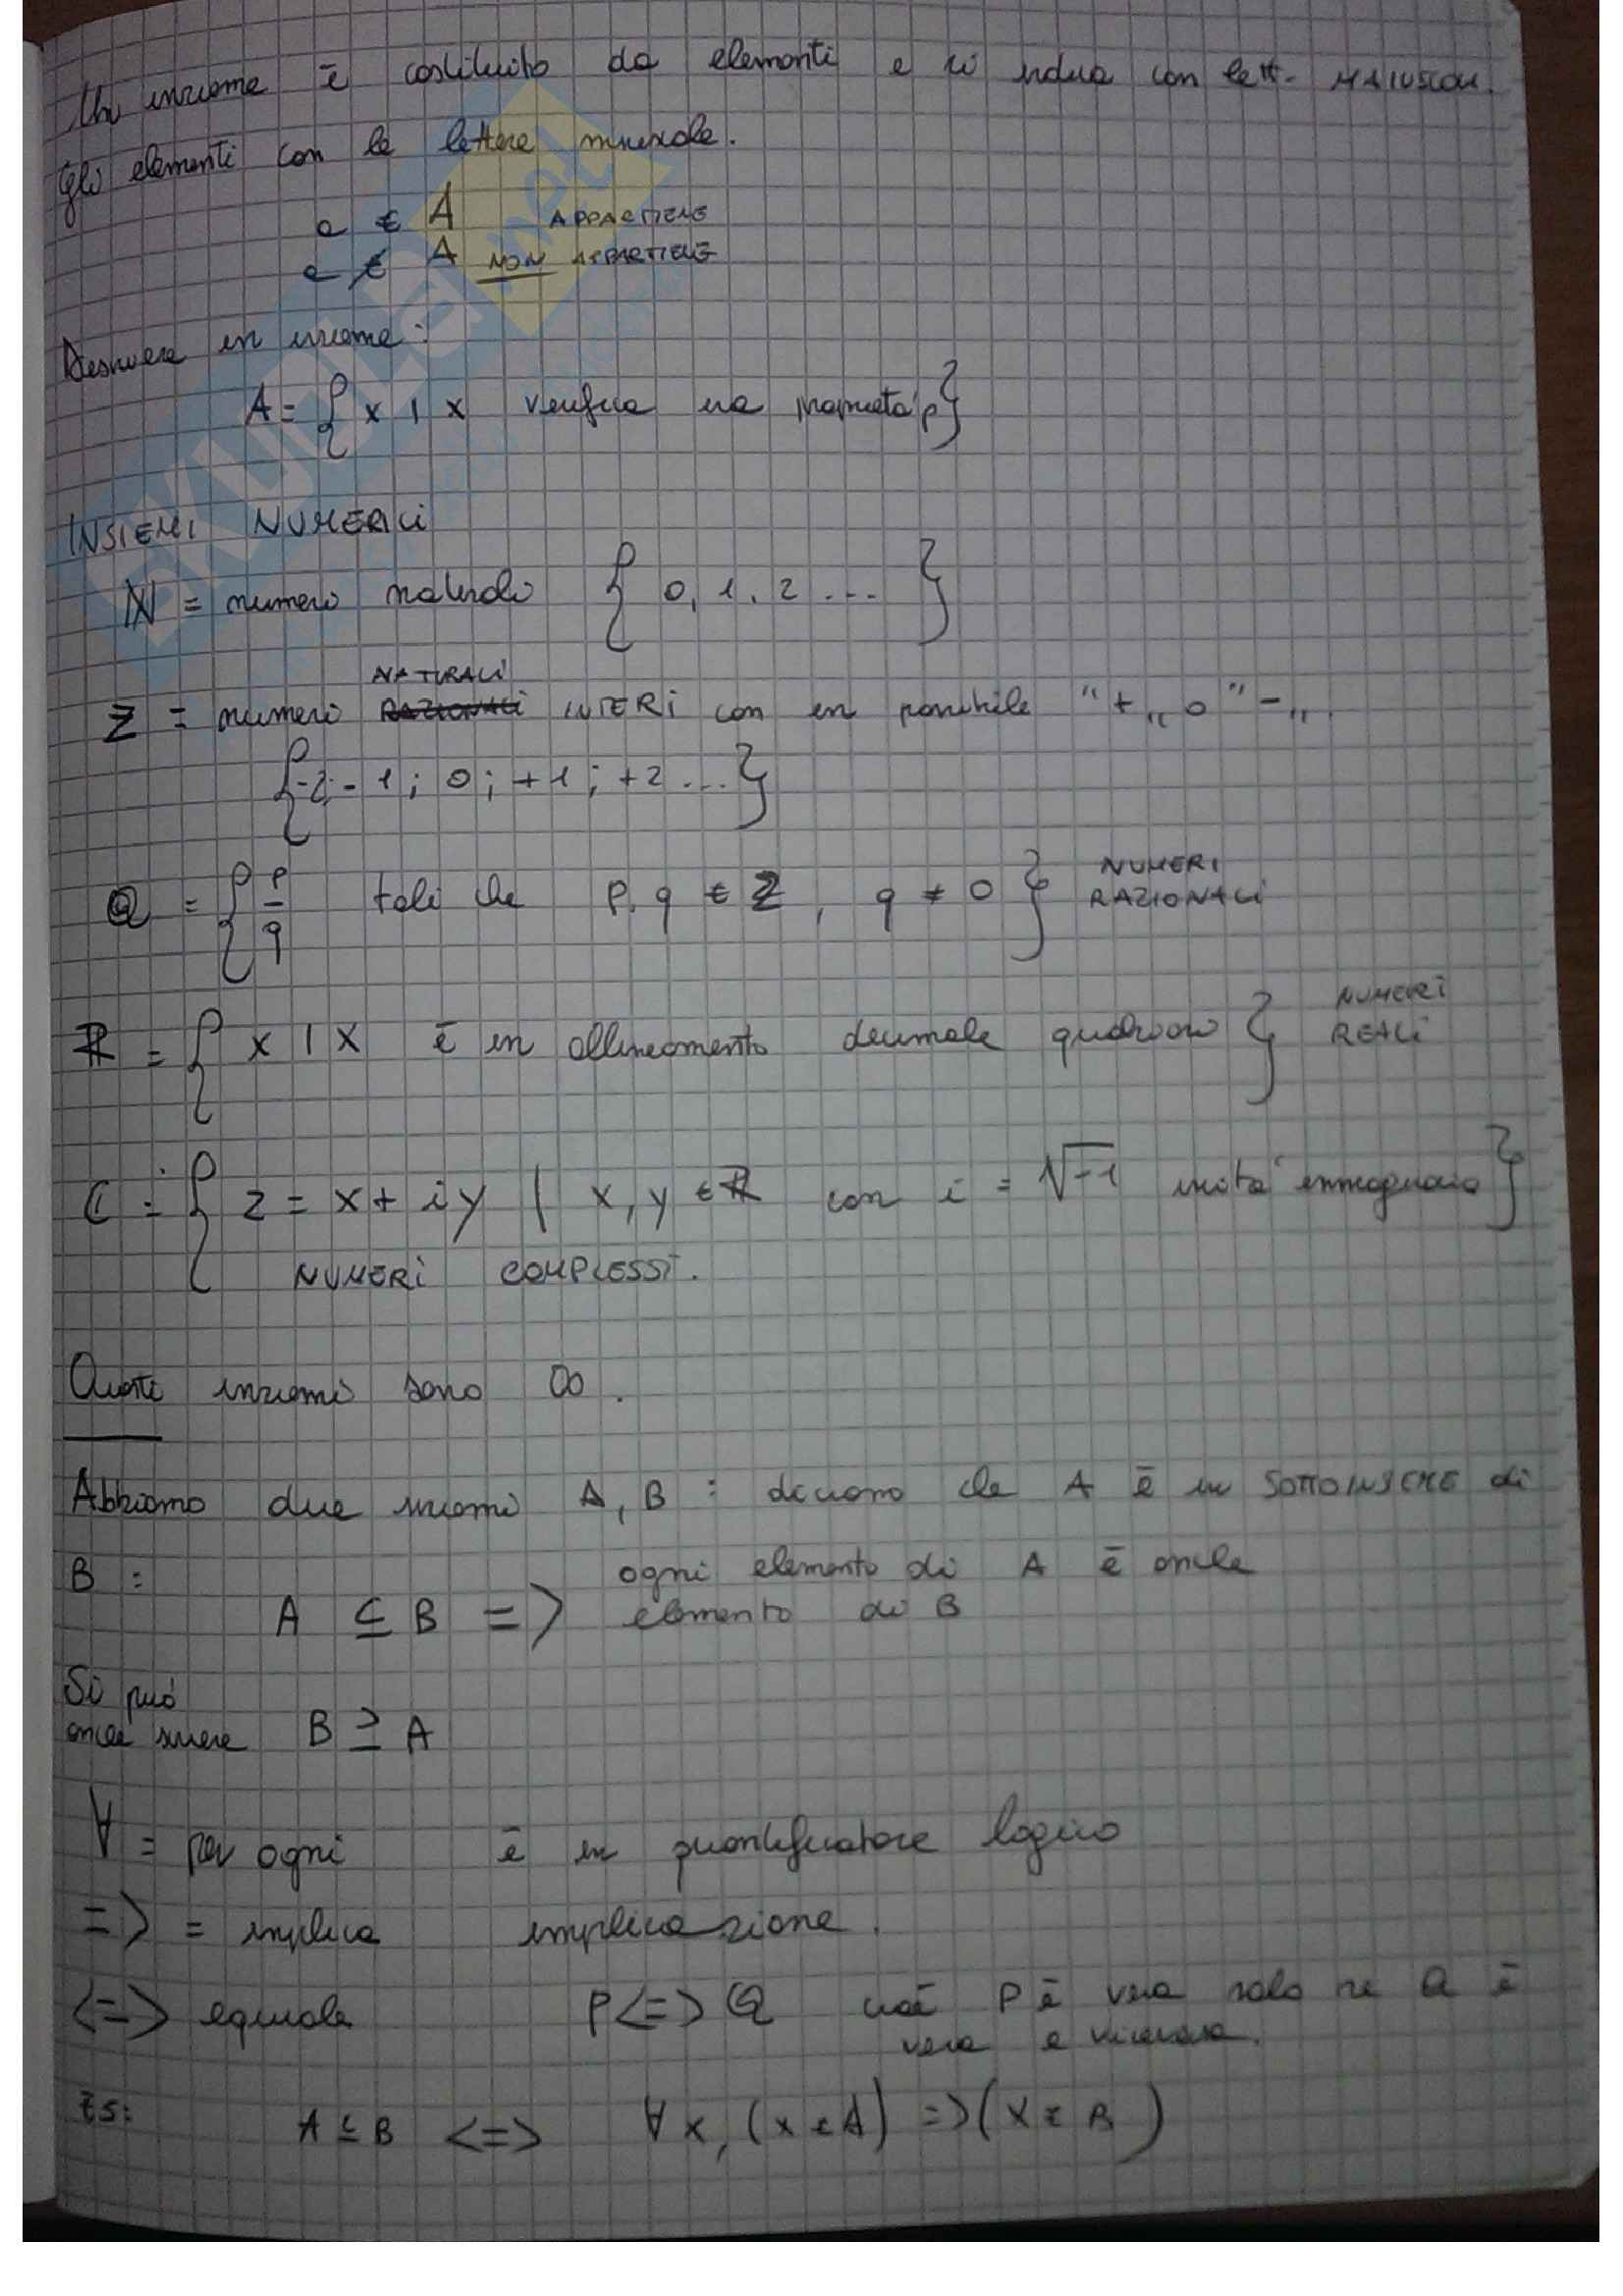 Un insieme è costituito da elementi e si indica con lett. MAIUSCOLE.
Gli elementi con le lettere minuscole.
a ∈ A APPARTIENE
a ∉ A NON APPARTIENE
Descrivere un insieme:
A = { x | x verifica una proprietà p }
INSIEMI NUMERICI
ℕ = numeri naturali { 0, 1, 2 ... }
NATURALI
ℤ = numeri RAZIONALI INTERI con un possibile "+" o "-".
{-2; -1; 0; +1; +2 ...}
ℚ = { p/q tali che p, q ∈ ℤ, q ≠ 0 } NUMERI RAZIONALI
ℝ = { x | x è un allineamento decimale qualsiasi } NUMERI REALI
ℂ = { z = x + iy | x, y ∈ ℝ con i = √-1 unità immaginaria }
NUMERI COMPLESSI.
Questi insiemi sono ∞.
Abbiamo due insiemi A, B : diciamo che A è un SOTTOINSIEME di
B : ogni elemento di A è anche
A ⊆ B => elemento di B
Si può
anche scrivere B ⊇ A
∀ = per ogni è un quantificatore logico
=> = implica implicazione.
<=> equivale P <=> Q cioè P è vera solo se Q è
vera e viceversa.
ES: A ⊆ B <=> ∀ x, (x ∈ A) => (x ∈ B)